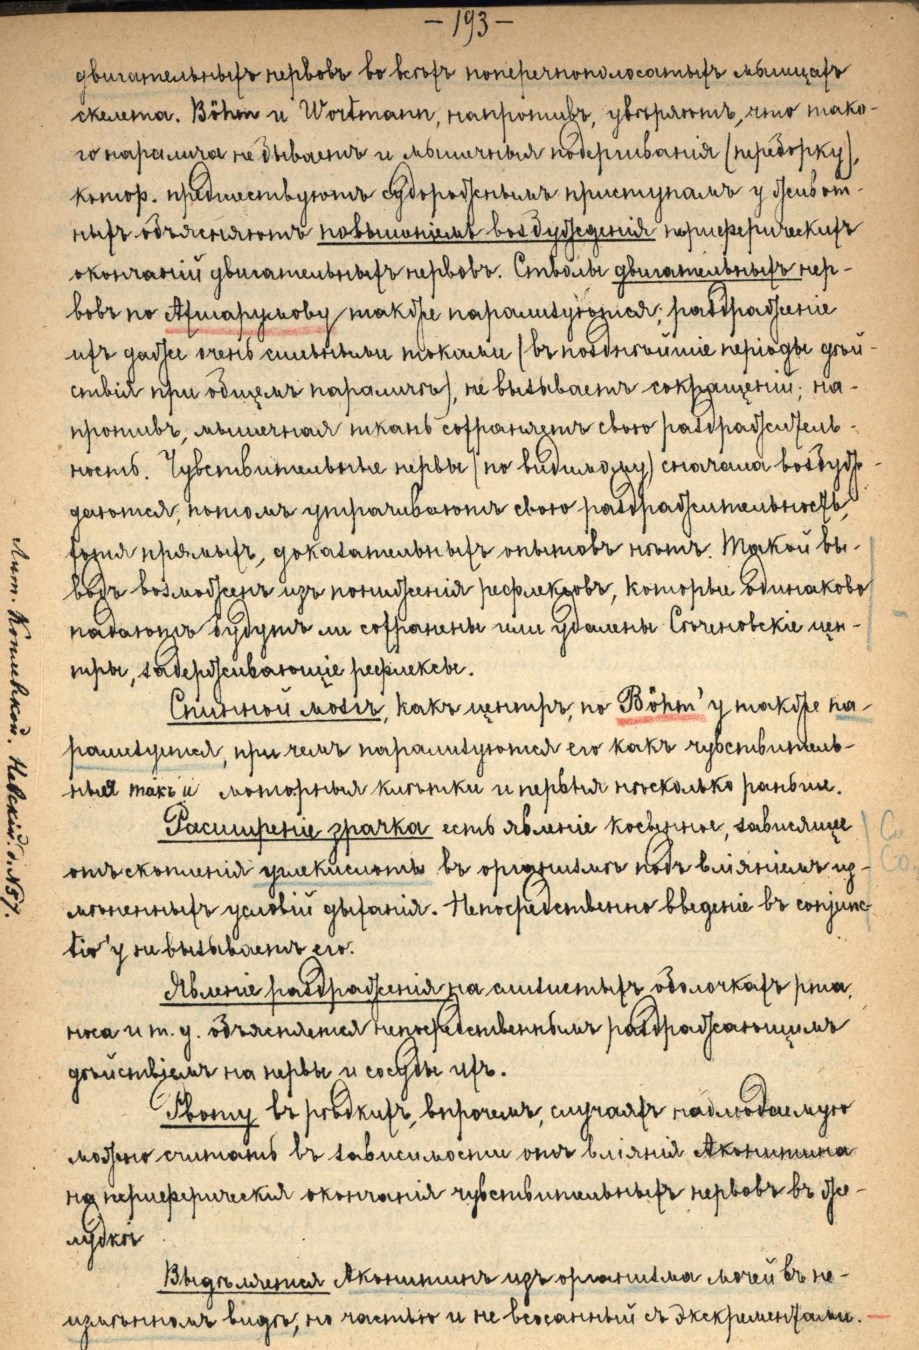 — 193 —
двигательныхъ нервовъ во всѣхъ поперечнополосатыхъ мышцахъ
скелета. Böhm и Wortmann, напротивъ, увѣряютъ, что тако-
го паралича не бываетъ и мышечныя подергиванія (передорку),
котор. предшествуютъ судорожнымъ приступамъ у живот-
ныхъ объясняютъ повышеніемъ возбужденія периферическихъ
окончаній двигательныхъ нервовъ. Стволы двигательныхъ нер-
вовъ по Ахшарумову также парализуются; раздраженіе
ихъ даже очень сильными токами (въ позднѣйшіе періоды дѣй-
ствія при общемъ параличѣ), не вызываетъ сокращеній; на-
противъ, мышечная ткань сохраняетъ свою раздражитель-
ность. Чувствительные нервы (по видимому) сначала возбуж-
даются, потомъ утрачиваютъ свою раздражительность,
хотя прямыхъ, доказательныхъ опытовъ нѣтъ. Такой вы-
водъ возможенъ изъ пониженія рефлексовъ, которые одинаково
падаютъ будутъ ли сохранены или удалены Сѣченовскіе цен-
тры, задерживающіе рефлексы.
Спинной мозгъ, какъ центръ, по Böhm'у также па-
рализуется, при чемъ парализуются его какъ чувствитель-
ныя такъ и моторныя клѣтки и первыя нѣсколько раньше.
Расширеніе зрачка есть явленіе косвенное, зависящее
отъ скопленія углекислоты въ организмѣ подъ вліяніемъ из-
мѣненныхъ условій дыханія. Непосредственно введеніе въ conjunc-
tiv'у не вызываетъ его.
Явленіе раздраженія на слизистыхъ оболочкахъ рта,
носа и т. д. объясняется непосредственнымъ раздражающимъ
дѣйствіемъ на нервы и сосуды ихъ.
Рвоту въ рѣдкихъ, впрочемъ, случаяхъ наблюдаемую
можно считать въ зависимости отъ вліянія Аконитина
на периферическія окончанія чувствительныхъ нервовъ въ же-
лудкѣ
Выдѣляется Аконитинъ изъ организма мочей въ не-
измѣнномъ видѣ, но частью и не всосанный съ экскрементами.
Лит. Невскій. д. №57.